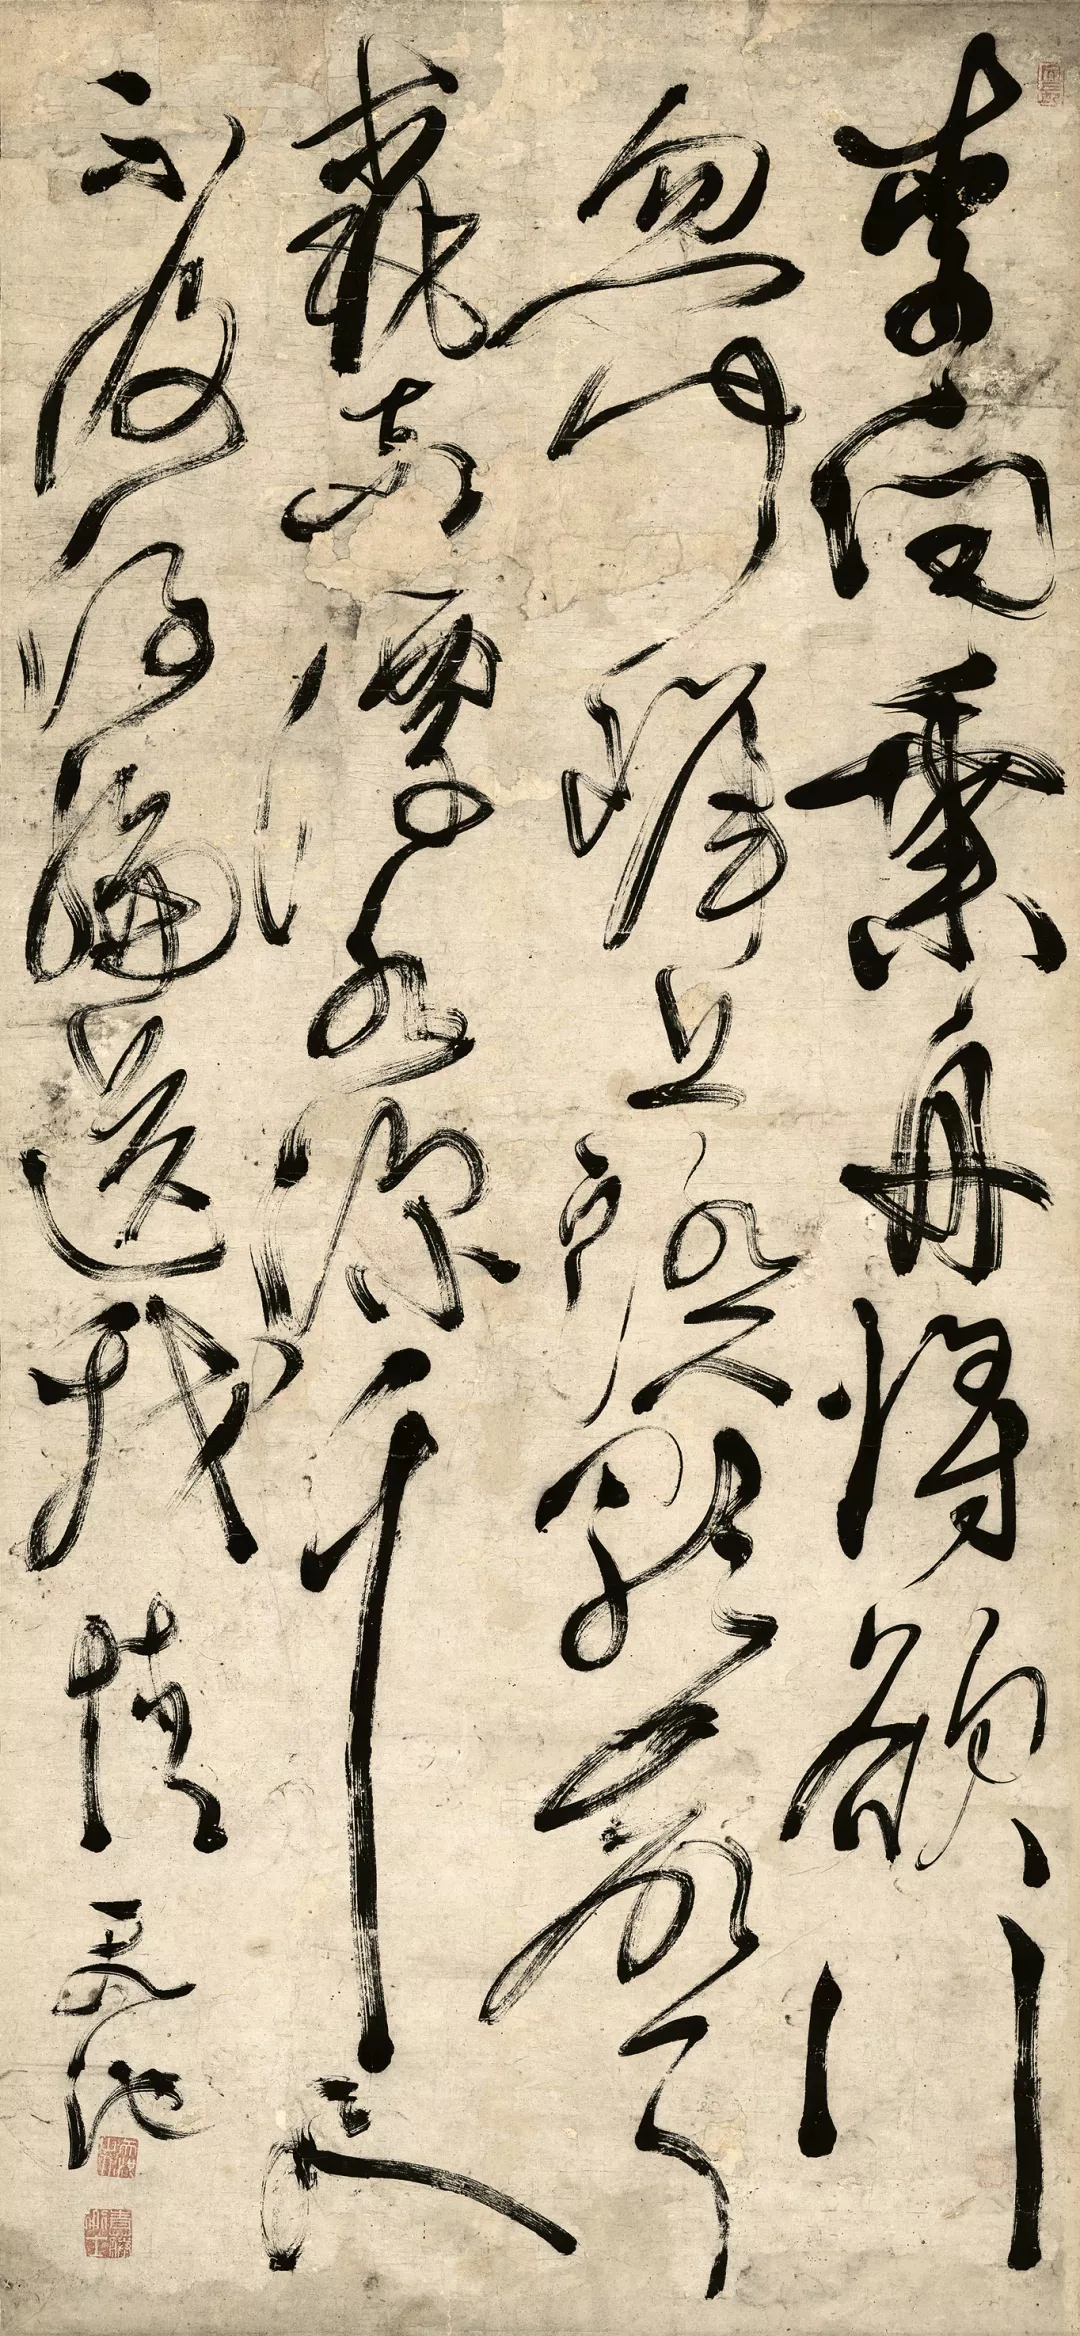 李白乘舟將欲行
忽聞岸上踏歌聲
桃花潭水深千尺
不及汪倫送我情天池